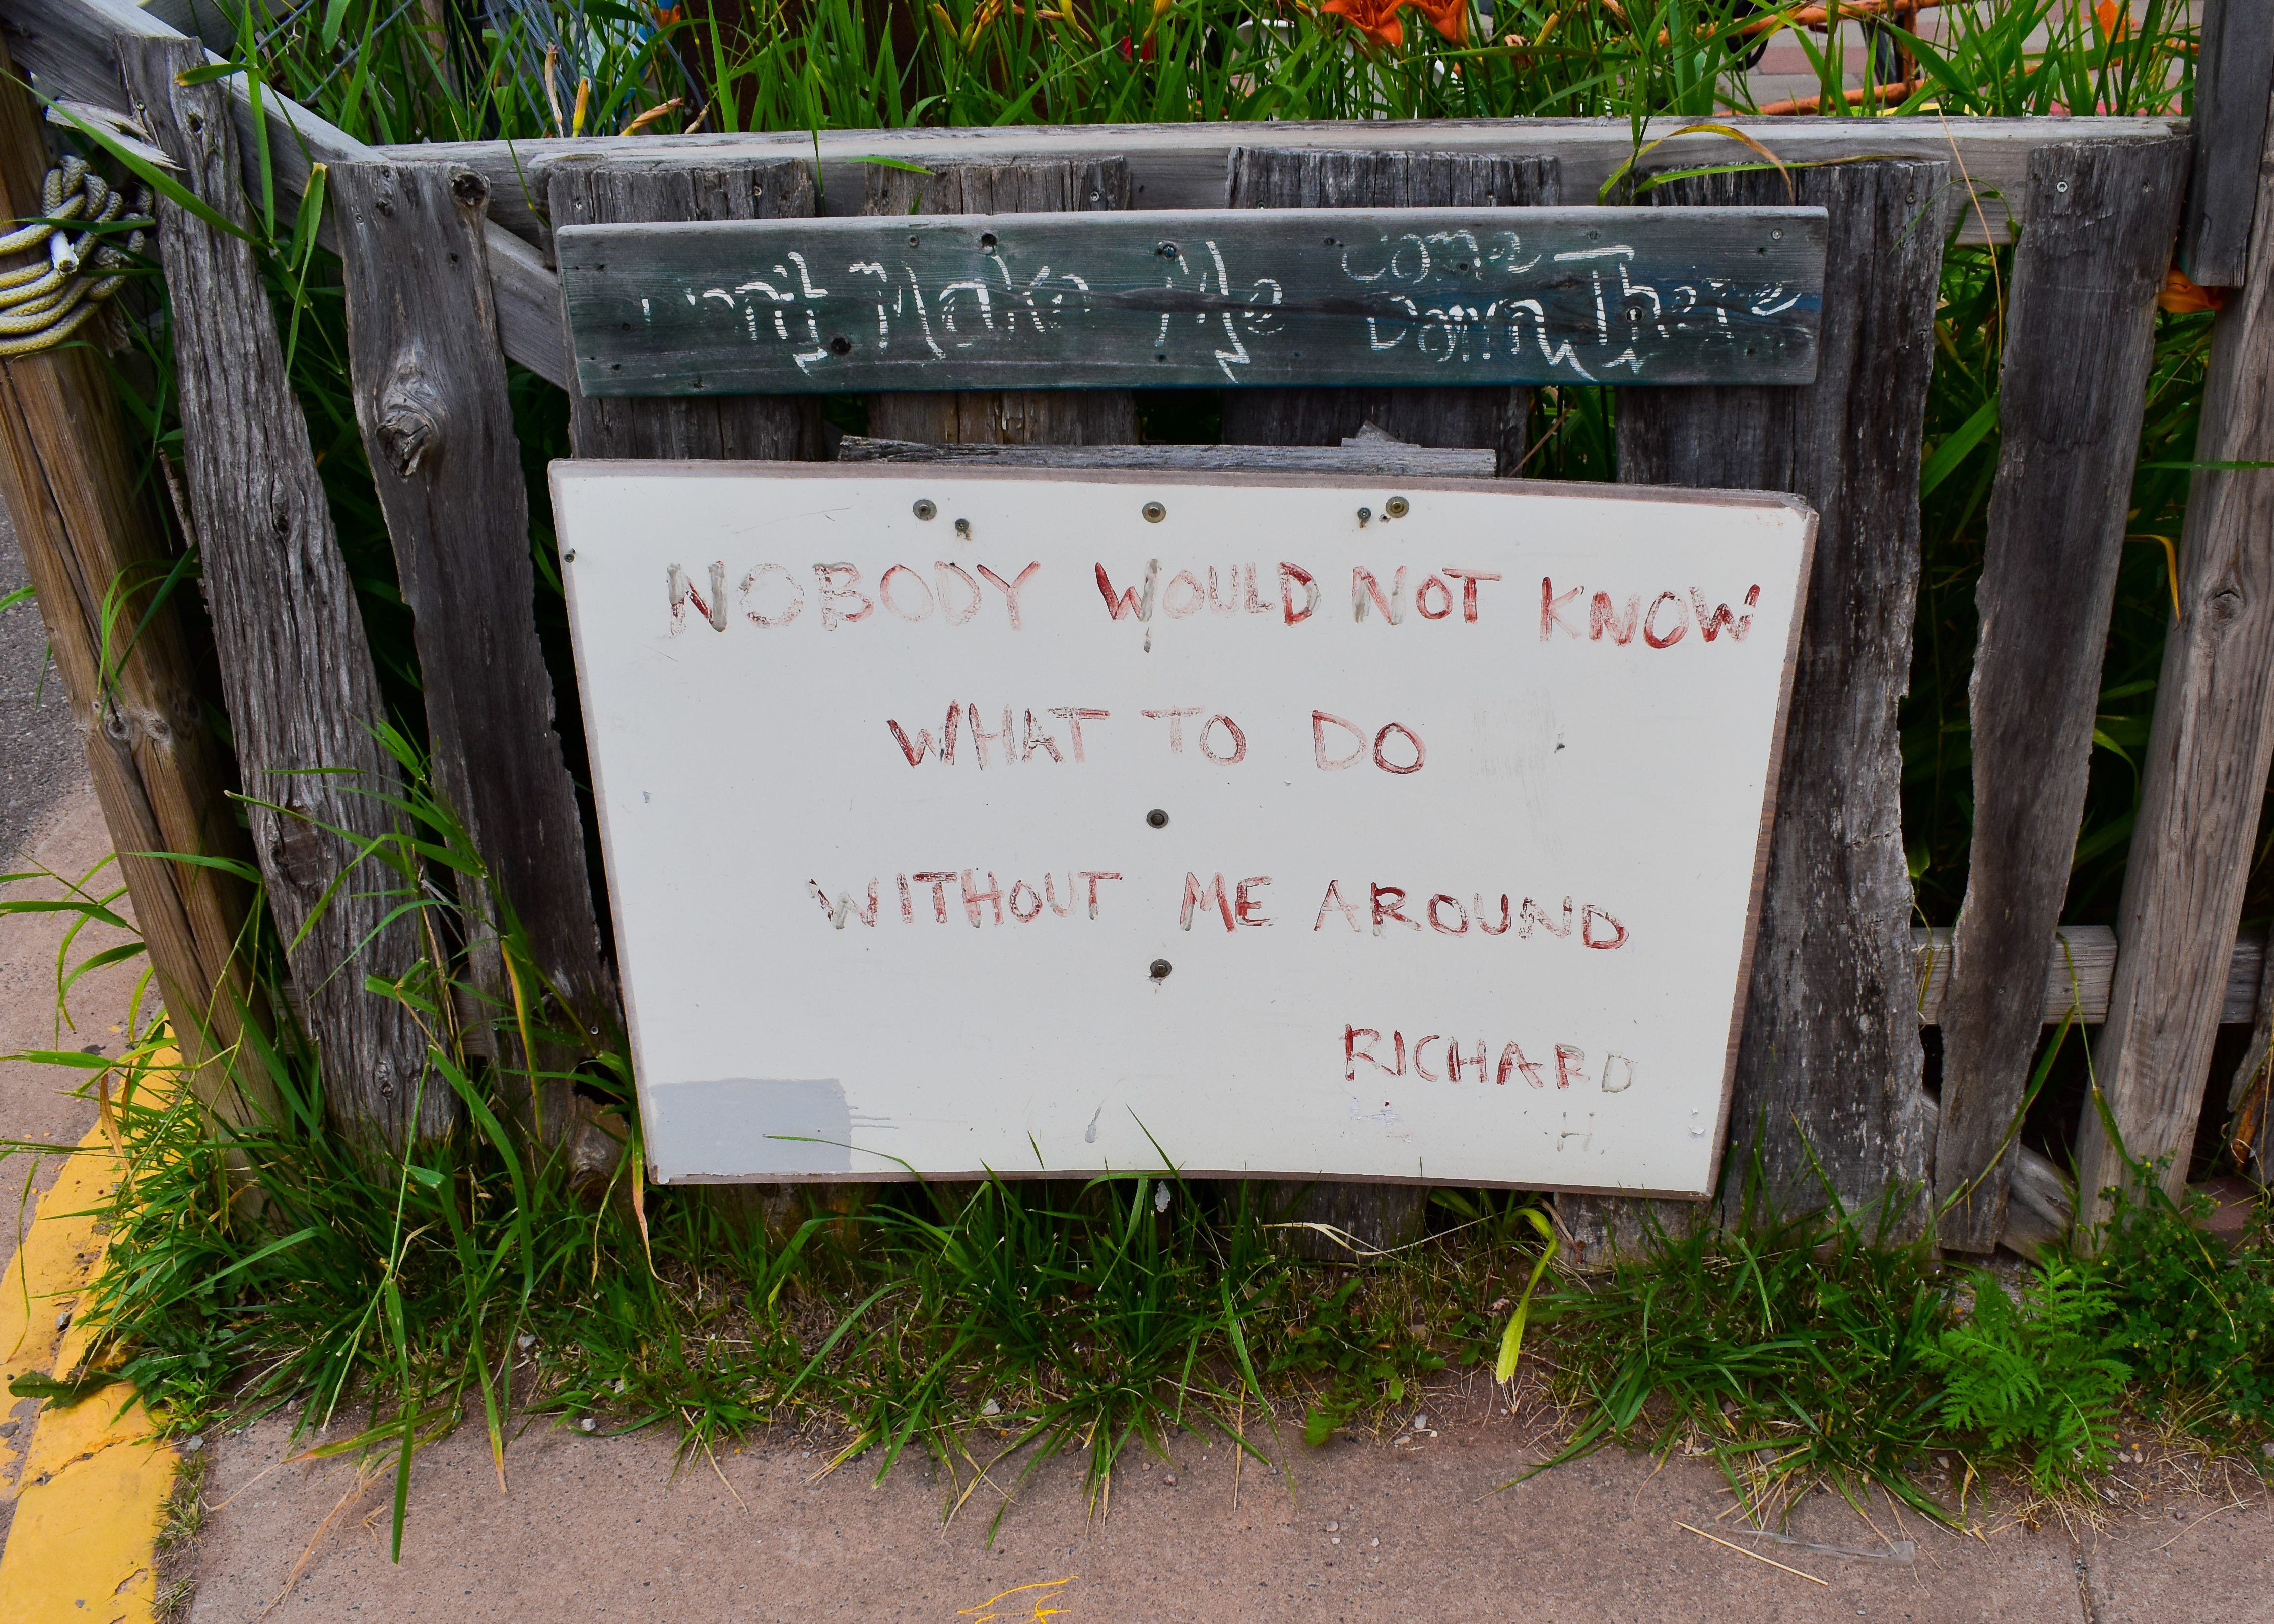 Dont Make Me Come
Down There
NOBODY WOULD NOT KNOW
WHAT TO DO
WITHOUT ME AROUND
RICHARD
H